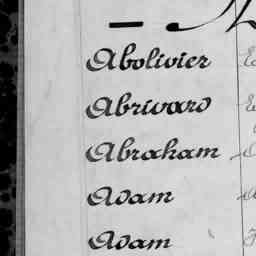 Abolivier
Abrivard
Abraham
Adam
Adam